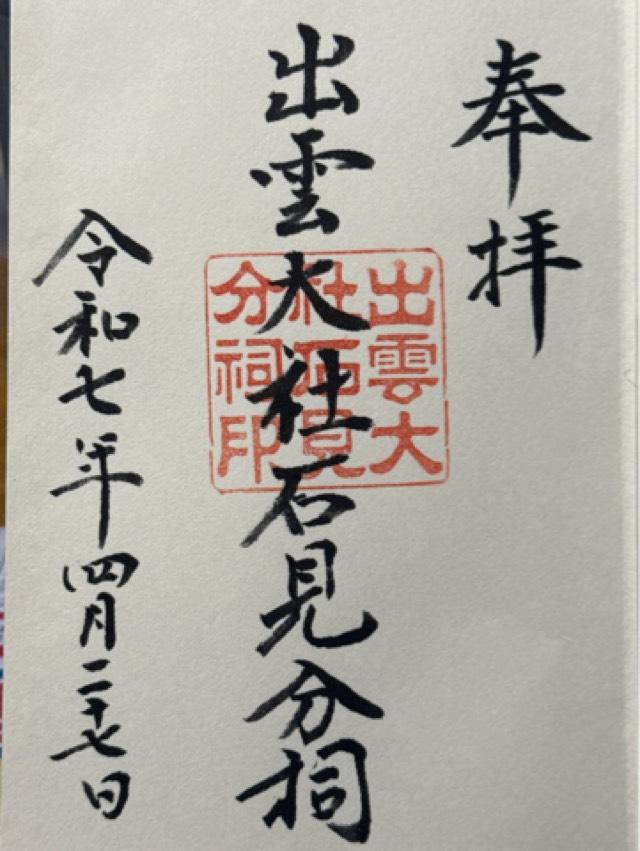 奉拝
出雲大社石見分祠
出雲大
社石見
分祠印
令和七年四月二十七日